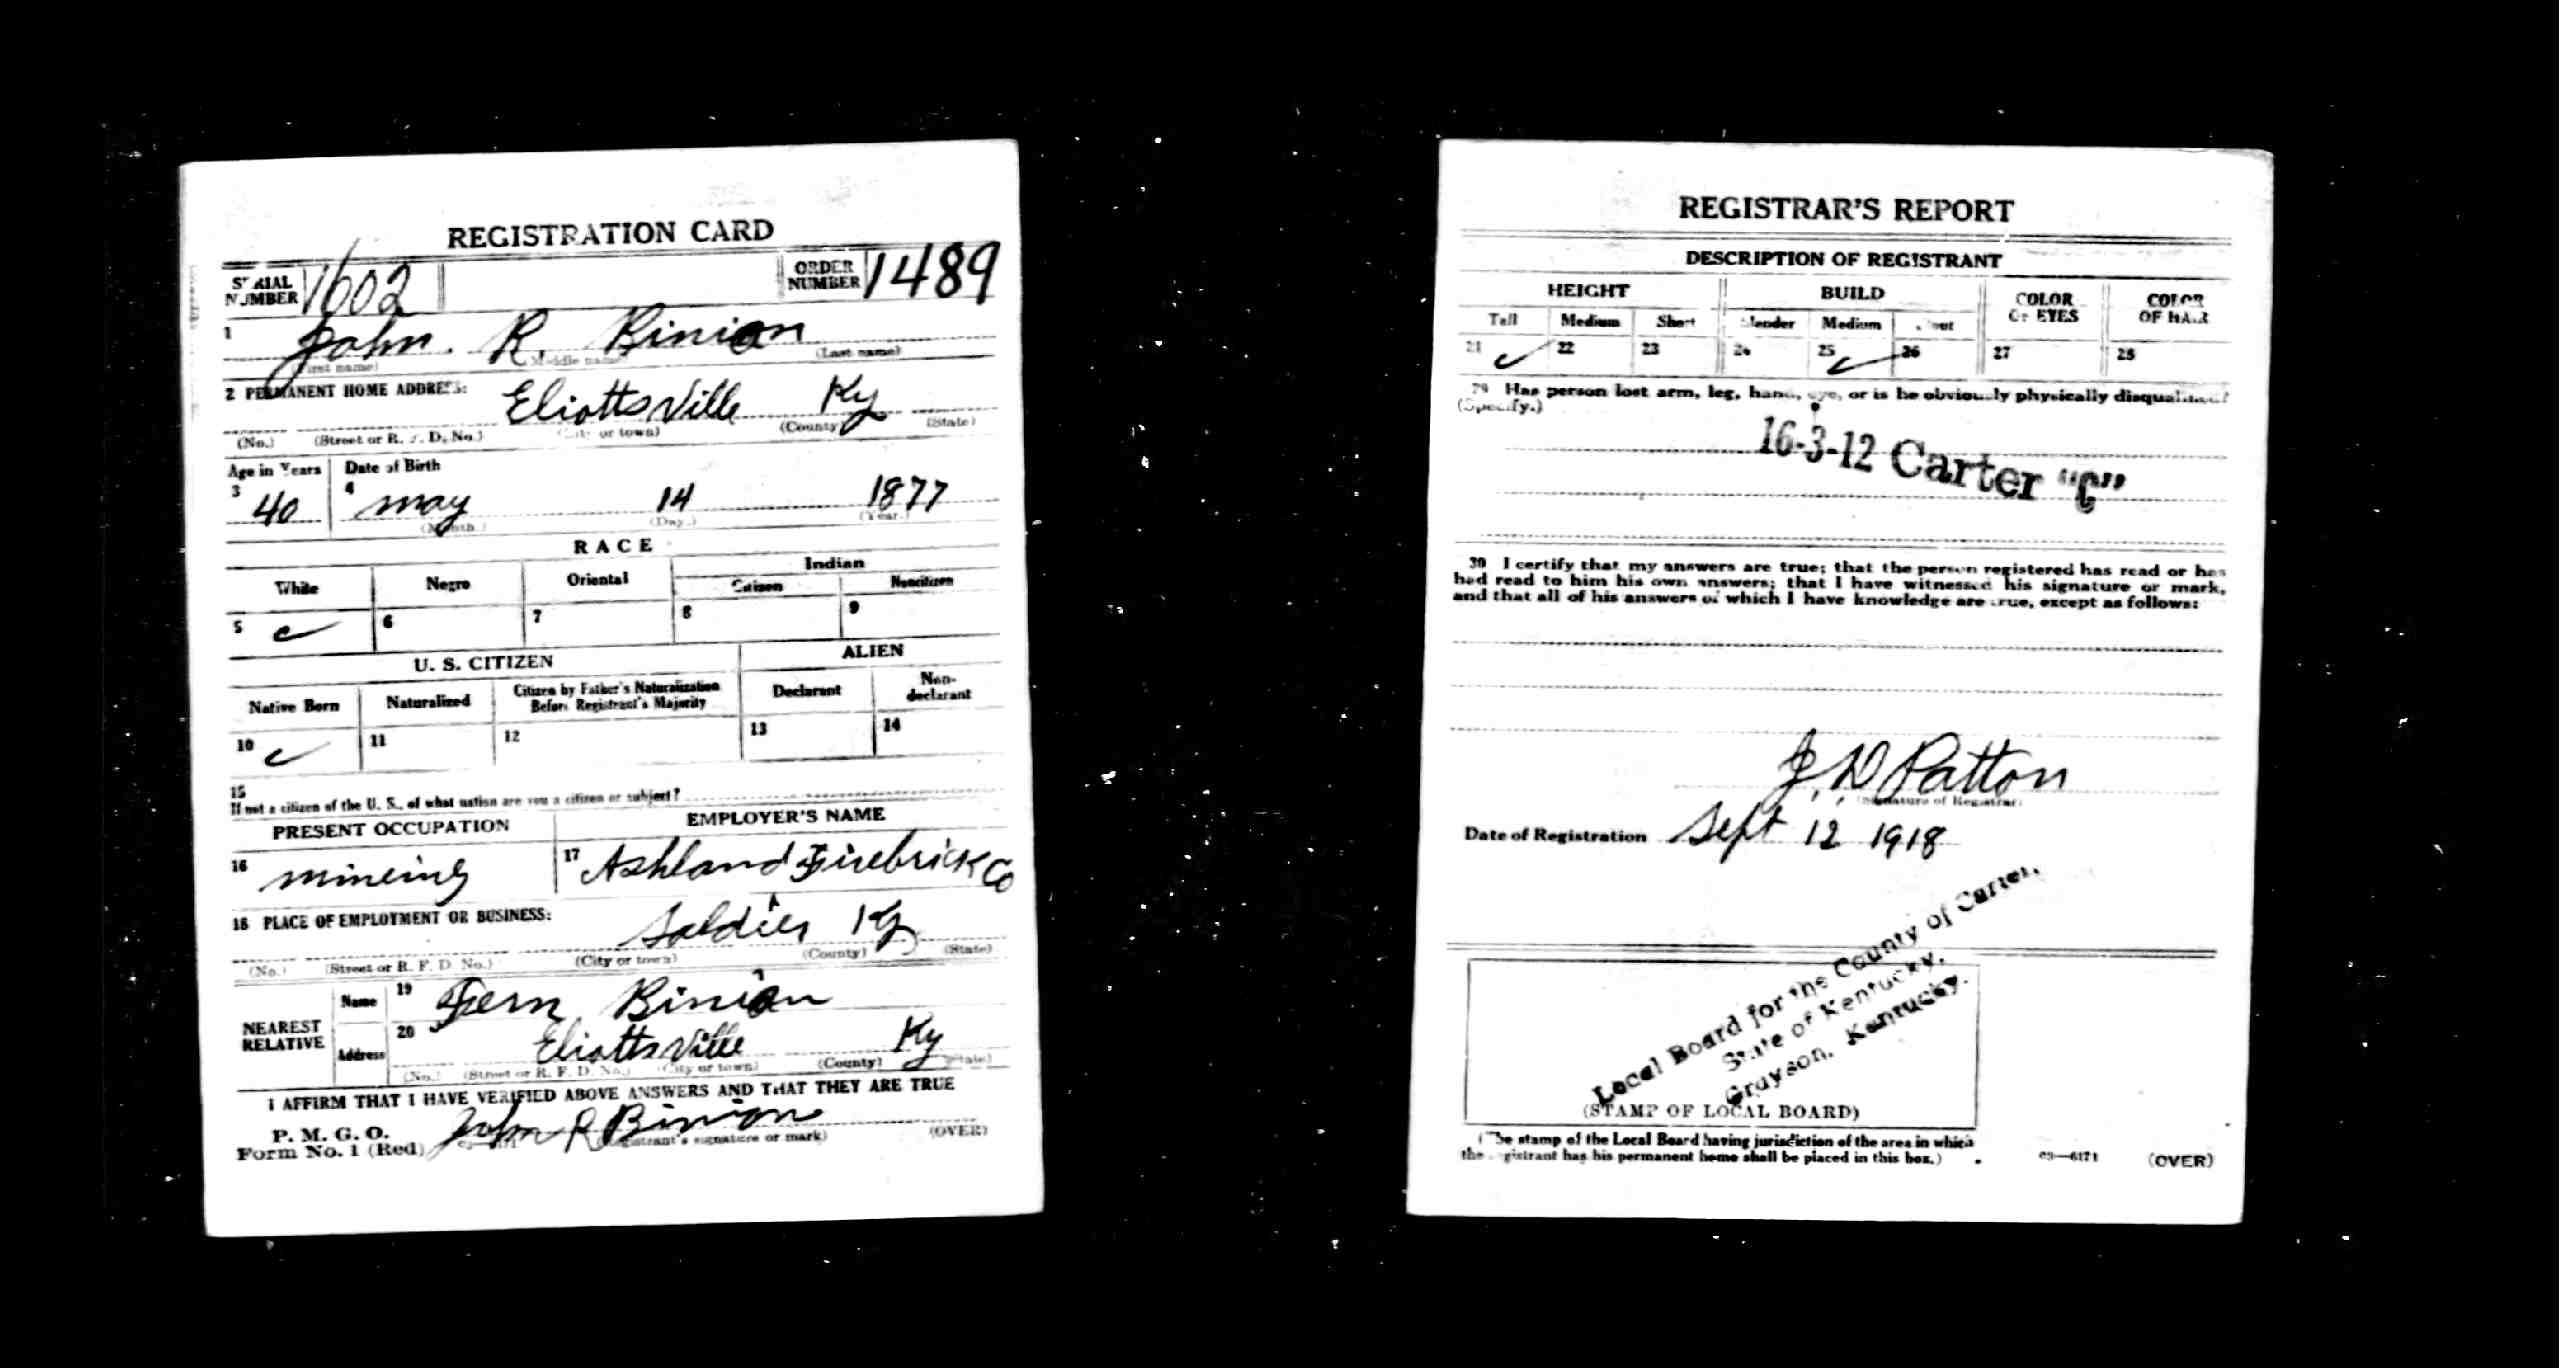 REGISTRATION CARD
SERIAL NUMBER 1602 ORDER NUMBER 1489
1 John. R. Binion
(First name) (Middle name) (Last name)
2 PERMANENT HOME ADDRESS: Eliottsville Ky
(No.) (Street or R. F. D. No.) (City or town) (County) (State)
Age in Years Date of Birth
3 40 4 may 14 1877
(Month.) (Day.) (Year.)
RACE
White Negro Oriental Indian
Citizen Noncitizen
5 6 7 8 9
U. S. CITIZEN ALIEN
Native Born Naturalized Citizen by Father's Naturalization Before Registrant's Majority Declarant Non-declarant
10 11 12 13 14
15
If not a citizen of the U. S., of what nation are you a citizen or subject?
PRESENT OCCUPATION EMPLOYER'S NAME
16 mineing 17 Ashland Firebrick Co
18 PLACE OF EMPLOYMENT OR BUSINESS: Soldier Ky
(No.) (Street or R. F. D. No.) (City or town) (County) (State)
NEAREST RELATIVE
Name 19 Fern Binion
Address 20 Eliottsville Ky
(No.) (Street or R. F. D. No.) (City or town) (County) (State)
I AFFIRM THAT I HAVE VERIFIED ABOVE ANSWERS AND THAT THEY ARE TRUE
P. M. G. O.
Form No. 1 (Red) John R Binion
(Registrant's signature or mark) (OVER)
REGISTRAR'S REPORT
DESCRIPTION OF REGISTRANT
HEIGHT BUILD COLOR OF EYES COLOR OF HAIR
Tall Medium Short Slender Medium Stout
21 22 23 24 25 26 27 28
29 Has person lost arm, leg, hand, eye, or is he obviously physically disqualified?
(Specify.)
16-3-12 Carter "C"
30 I certify that my answers are true; that the person registered has read or has
had read to him his own answers; that I have witnessed his signature or mark,
and that all of his answers of which I have knowledge are true, except as follows:
J. D Patton
(Signature of Registrar)
Date of Registration Sept 12 1918
Local Board for the County of Carter,
State of Kentucky,
Grayson, Kentucky.
(STAMP OF LOCAL BOARD)
(The stamp of the Local Board having jurisdiction of the area in which
the registrant has his permanent home shall be placed in this box.)
03—6171 (OVER)